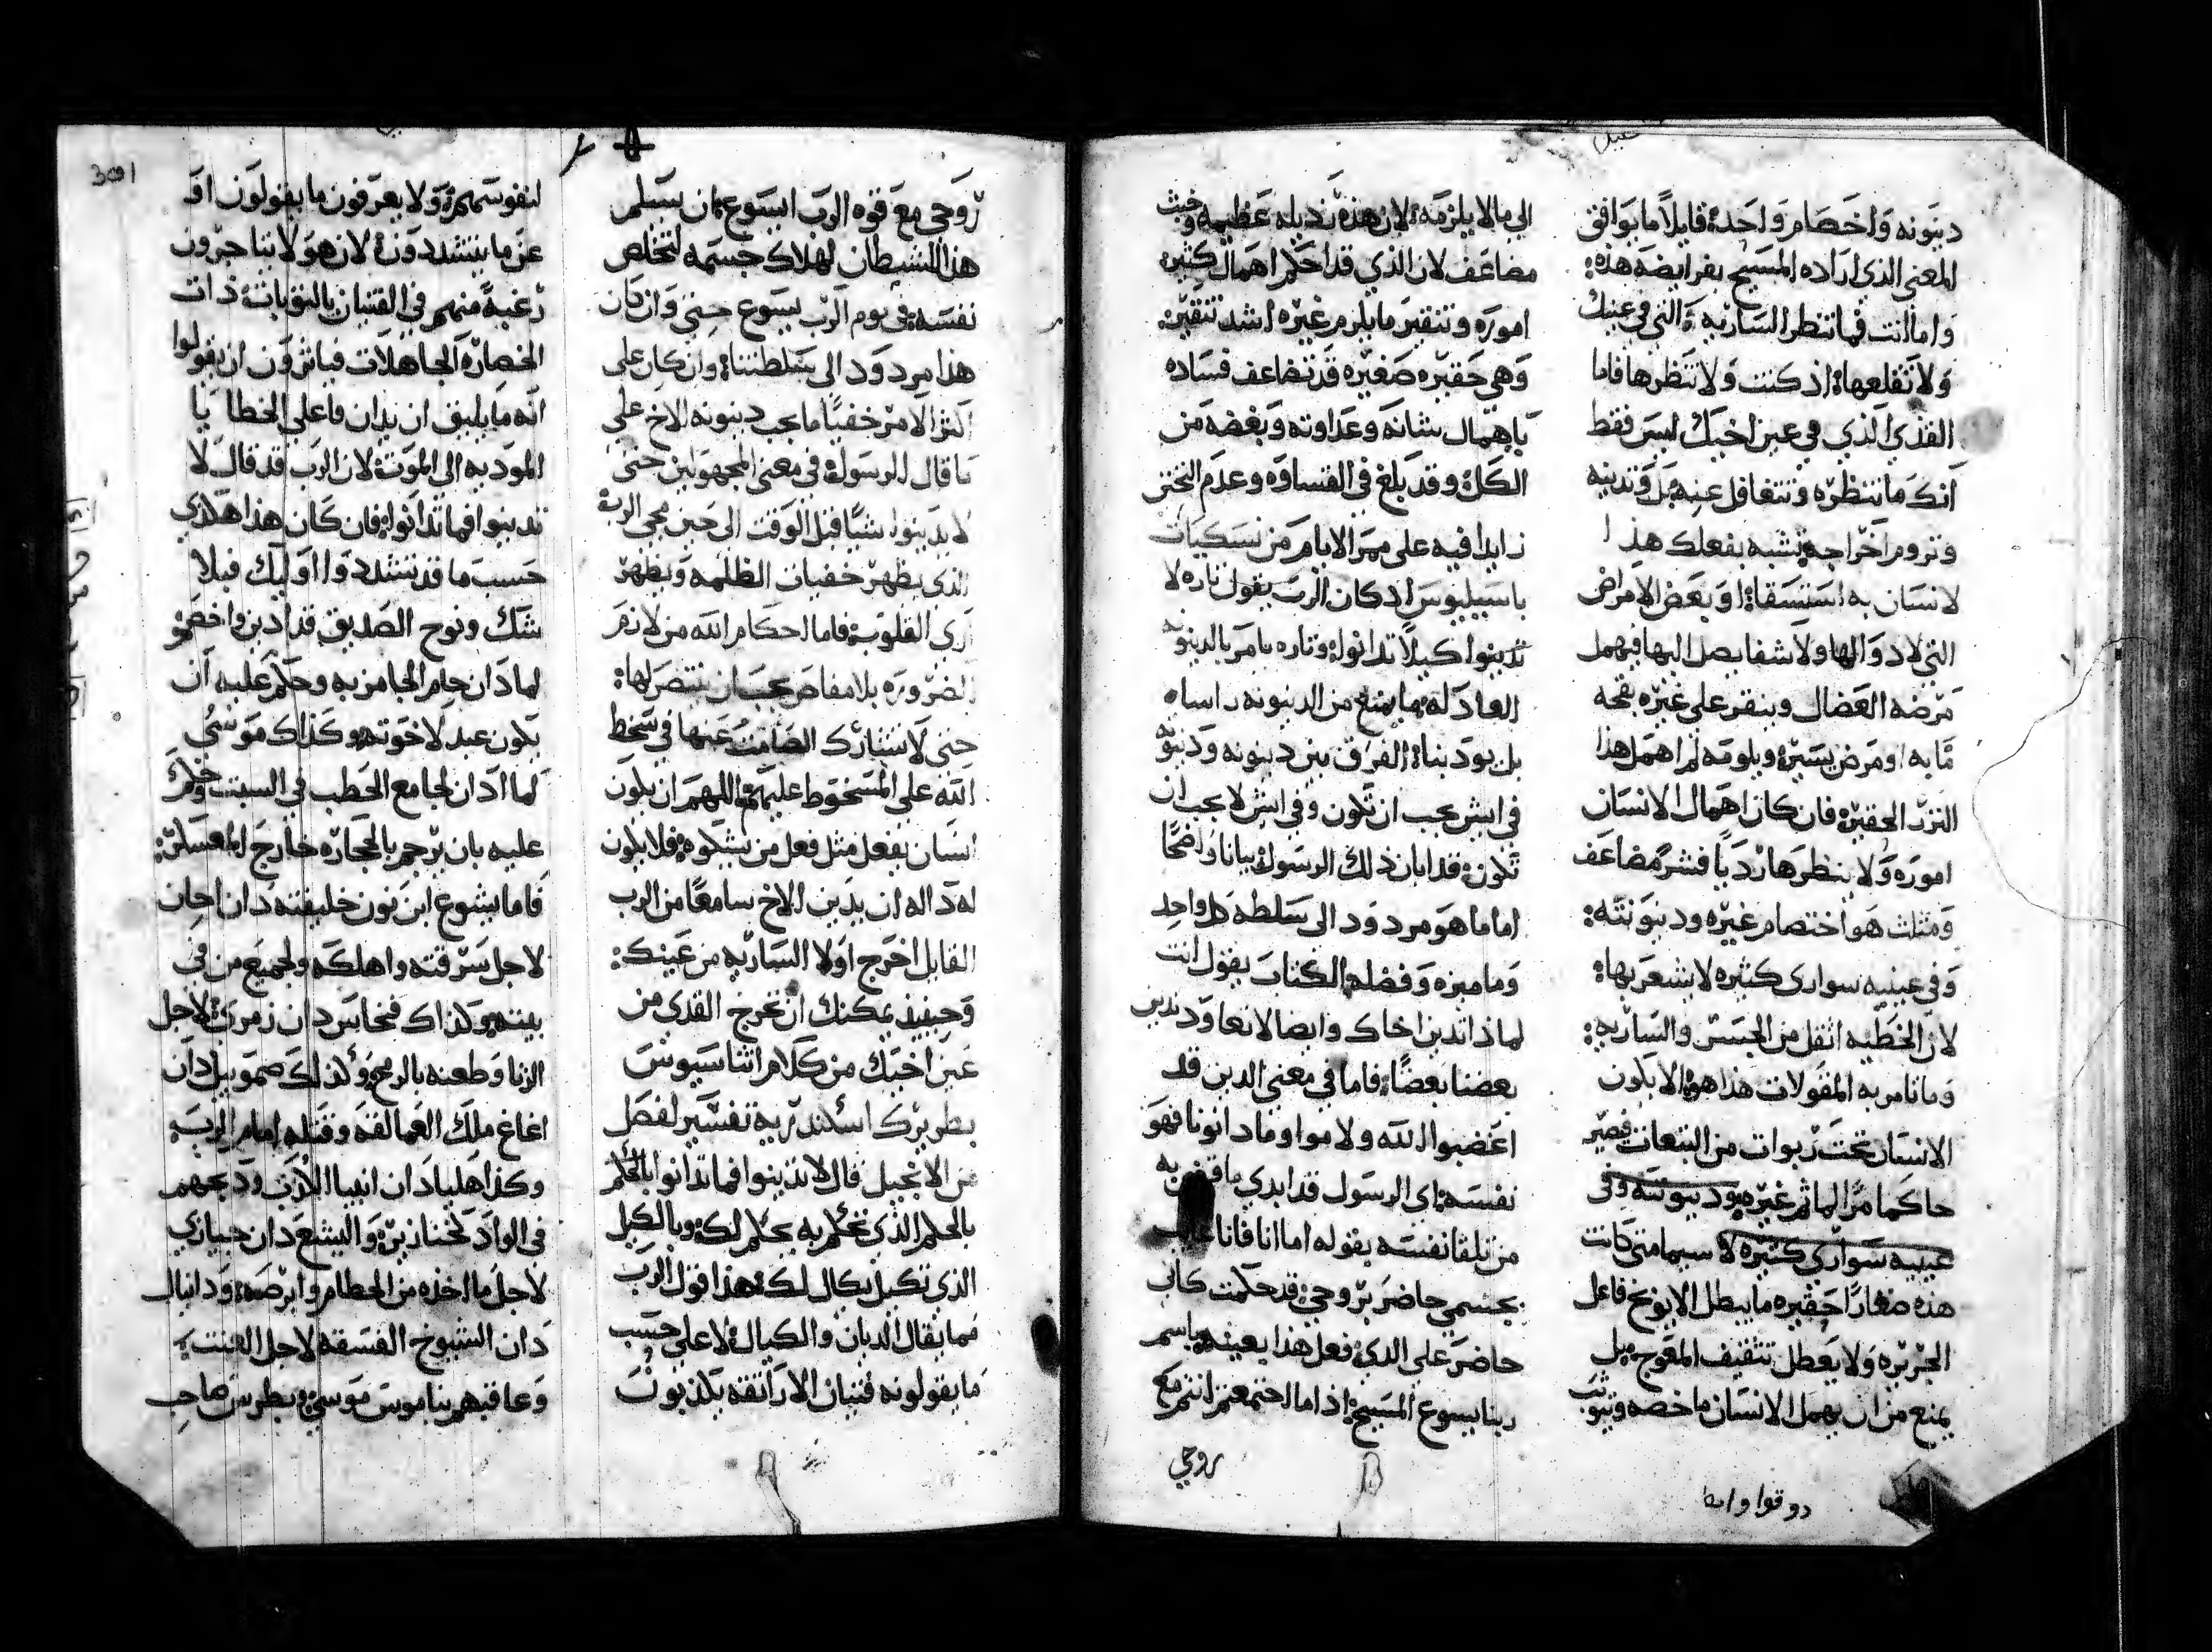 دينونه واخصام واحدة قايلاً ما يوافق
المعني الذي اراده المسيح بفرايضه هذه:
واما انت فما تنظر الساريه التي في عينك
ولا تقلعها اذ كنت ولا تنظرها فاما
القذي الذي في عين اخيك ليس فقط
انك ما تنظره وتتغافل عنه بل وتدينه
وتروم اخراجه تشبه بفعلك هذا ا
لانسان به استسقا او بعض الامراض
التي لا دوا لها ولا شفا يصل اليها فيهمل
مرضه العضال وينقر علي غيره بقحه
ما به او مرض يسيره ويلومه لم اهمل هذا
النزر الحقير فان كان اهمال الانسان
اموره ولا ينظرها رديا فشر مضاعف
ومثلث هو اختصام غيره ودينونته:
وفي عينيه سواري كثيره لا يشعر بها:
لان الخطيه اثقل من الجسر والساريه:
وما تامر به المقولات هذا هو الا يكون
الانسان تحت ربوات من التبعات فيصير
حاكما مر الماثم غيره ودينونته وفي
عينيه سواري كثيره لا سيما متي كانت
هذه صغارًا حقيره ما يبطل الا يوبخ فاعل
الجريره ولا يعطل تثقيف المعوج بل
يمنع من ان يهمل الانسان ما خصه ويثوب
الي ما لا يلزمه لان هذه رذيله عظيمه وخبث
مضاعف لان الذي قد احكم اهمال كثيره
اموره وتنقير ما يلزم غيره اشد تنقير:
وهي حقيره صغيره قد تضاعف فساده
باهمال شانه وعداوته وبغضه من
الكل وقد بلغ في القساوه وعدم التحنن
زايدا فيه علي ممر الايام من نسكيات
باسيليوس اذ كان الرب يقول تاره لا
تدينوا كيلا تدانوا وتاره يامر بالدينونه
العادله ما يمنع من الدينونه راسا
بل يودبنا الفرق بين دينونه ودينونه
في ايش يجب ان تكون وفي ايش لا يجب ان
تكون قد ابان ذلك الرسول بيانا واضحًا
اما ما هو مردود الي سلطه كل واحد
وما ميزه وفضله الكتاب يقول انت
لماذا تدين اخاك وايضا لا نعاود ندين
بعضنا بعضًا فاما في معني الذين قد
اغضبوا الله ولاموا وما دانونا فهو
نفسه اي الرسول قد ابدي ما قضي به
من تلقا نفسه بقوله اما انا فانا غايب
بجسمي حاضر بروحي قد حكمت كاني
حاضر علي الذي فعل هذا بعينه باسم
ربنا يسوع المسيح اذا ما اجتمعتم انتم مع
روحي
روحي مع قوه الرب ايسوع بان يسلم
هذا للشيطان لهلاك جسمه لتخلص
نفسه في يوم الرب يسوع حتي وان كان
هذا مردود الي سلطتنا وان كان علي
اكثر الامر خفيًا ما يجب دينونه الاخ علي
ما قال الرسول في معني المجهولين حتي
لا يدينوا شيًا قبل الوقت الي حين مجي الرب
الذي يظهر خفيات الظلمه ويظهر
اري القلوب فاما احكام الله من لازم
الضروره بلا مفاض يجب ان ننتصر لها:
حتي لا يشارك الصامت عنها في سخط
الله علي المسخوط عليهم اللهم ان يكون
انسان يفعل مثل فعل من يشكوه فلا يكون
له دالة ان يدين الاخ سامعًا من الرب
القايل اخرج اولا الساريه من عينك:
وحينيذ يمكنك ان تخرج القذي من
عين اخيك من كلام اثناسيوس
بطريرك اسكندريه تفسير لفصل
من الانجيل قال لا تدينوا فما تدانوا بالحكم
بالحكم الذي تحكم به يحكم لك وبالكيل
الذي تكيل يكال لك هذا قول الرب
فما يقال الديان والكيال لا علي حسب
ما يقولونه فتيان الاراتقه يكذبون
لنفوسهم ولا يعرفون ما يقولون او
عن ما يتشددون لان هولا يتاجرون
رغبةً منهم في القتيان بالتوبات ذات
الخصاره الجاهلات فياثرون ان يقولوا
انه ما يليق ان يدان فاعلي الخطا يا
الموديه الي الموت لان الرب قد قال لا
تدينوا فما تدانوا فان كان هذا هكذي
حسب ما قد تشددوا اوليك فبلا
شك ونوح الصديق قد ادين واخصم
لما دان حام الجامزيه وحكم عليه ان
يكون عبد لاخوته وكذاك موسي
لما ادان لجامع الحطب في السبت وحكم
عليه بان يرجم بالحجاره خارج المعسكر:
فاما يشوع ابن نون خليفته دان اخان
لاجل سرقته واهلكه ولجميع من في
بيته وكذاك فنحاس دان زمري لاجل
الزنا وطعنه بالرمح وكذلك صموييل دان
اغاغ ملك العمالقه وقتله امام الرب
وكذا هليا دان انبيا الكذب وذبحهم
في الواد كخنازير واليشع دان جيازي
لاجل ما اخذه من الحطام وابرصه ودانيال
دان الشيوخ الفسقه لاجل العنت
وعاقبهم بناموس موسي وبطرس صاحب